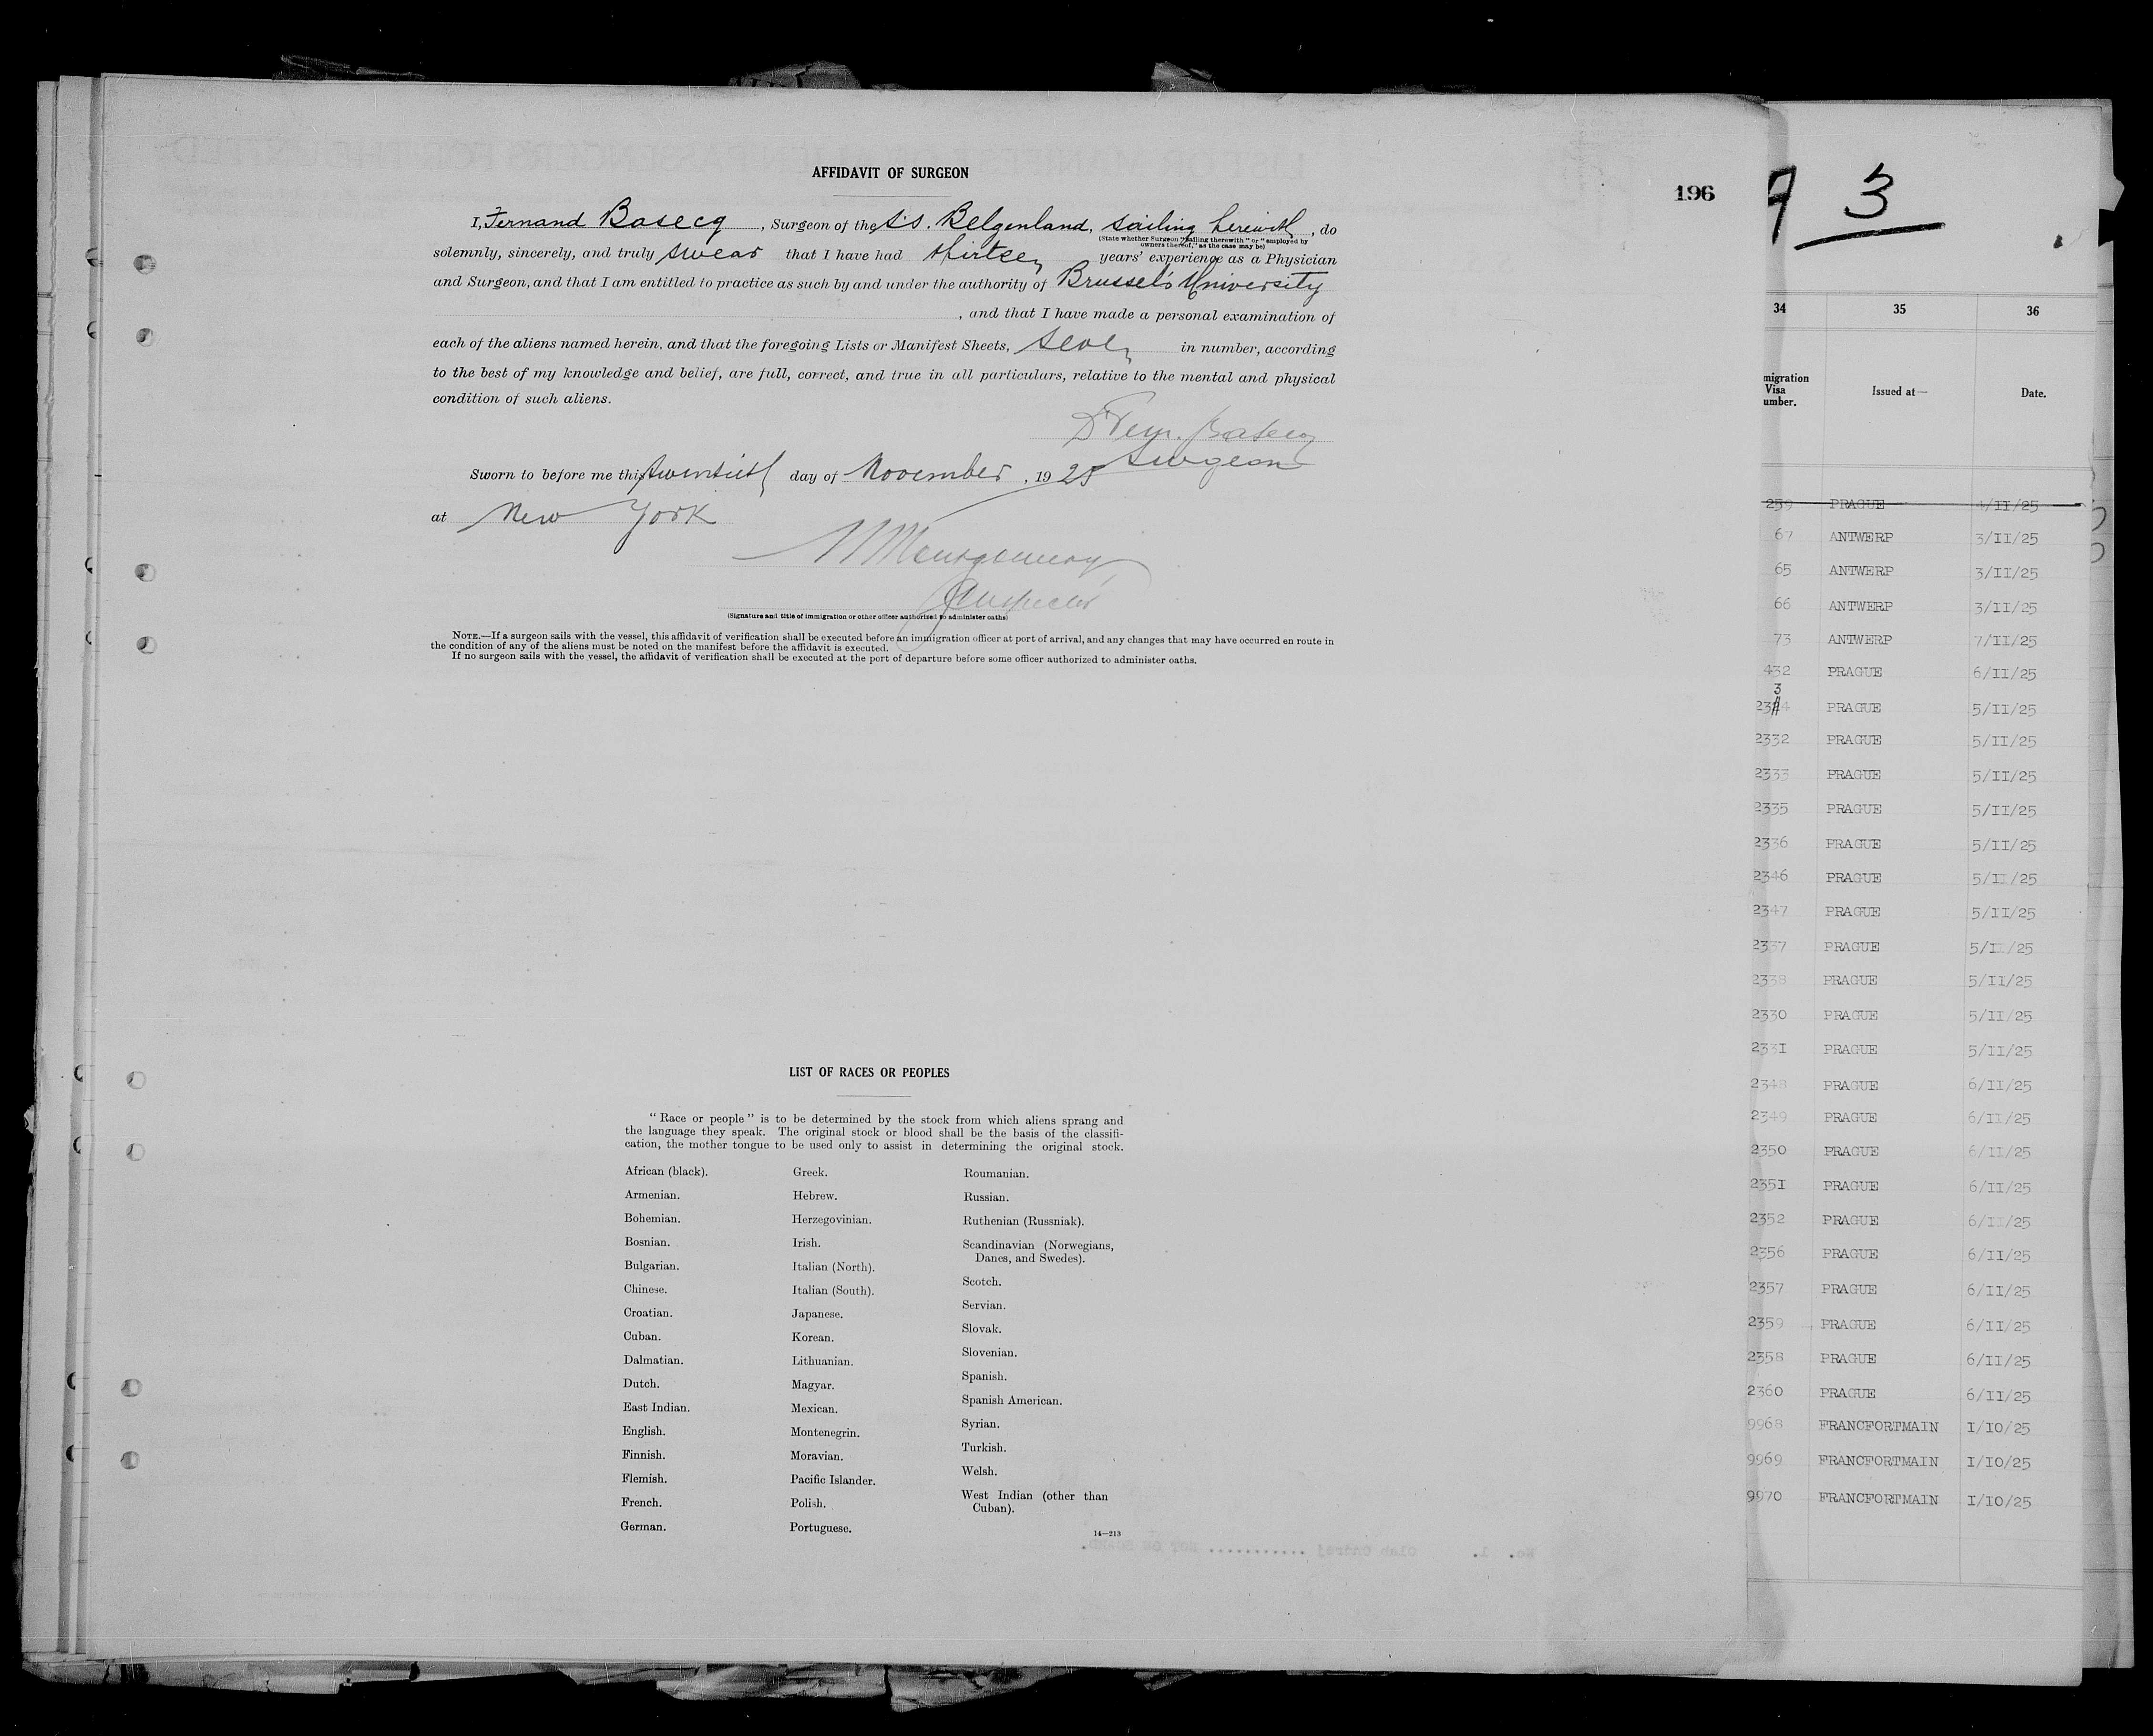 AFFIDAVIT OF SURGEON
196
I, Fernand Basecq, Surgeon of the S.S. Belgenland, sailing herewith, do
(State whether Surgeon "sailing therewith" or "employed by
owners thereof," as the case may be)
solemnly, sincerely, and truly swear that I have had thirteen years' experience as a Physician
and Surgeon, and that I am entitled to practice as such by and under the authority of Brussel's University
, and that I have made a personal examination of
each of the aliens named herein, and that the foregoing Lists or Manifest Sheets, seven in number, according
to the best of my knowledge and belief, are full, correct, and true in all particulars, relative to the mental and physical
condition of such aliens.
Dr Fern. Basecq
Surgeon
Sworn to before me this twentieth day of November, 1925
at New York
Montgomery
Inspector
(Signature and title of immigration or other officer authorized to administer oaths)
NOTE.—If a surgeon sails with the vessel, this affidavit of verification shall be executed before an immigration officer at port of arrival, and any changes that may have occurred en route in
the condition of any of the aliens must be noted on the manifest before the affidavit is executed.
If no surgeon sails with the vessel, the affidavit of verification shall be executed at the port of departure before some officer authorized to administer oaths.
LIST OF RACES OR PEOPLES
"Race or people" is to be determined by the stock from which aliens sprang and
the language they speak. The original stock or blood shall be the basis of the classifi-
cation, the mother tongue to be used only to assist in determining the original stock.
African (black).
Armenian.
Bohemian.
Bosnian.
Bulgarian.
Chinese.
Croatian.
Cuban.
Dalmatian.
Dutch.
East Indian.
English.
Finnish.
Flemish.
French.
German.
Greek.
Hebrew.
Herzegovinian.
Irish.
Italian (North).
Italian (South).
Japanese.
Korean.
Lithuanian.
Magyar.
Mexican.
Montenegrin.
Moravian.
Pacific Islander.
Polish.
Portuguese.
Roumanian.
Russian.
Ruthenian (Russniak).
Scandinavian (Norwegians,
Danes, and Swedes).
Scotch.
Servian.
Slovak.
Slovenian.
Spanish.
Spanish American.
Syrian.
Turkish.
Welsh.
West Indian (other than
Cuban).
14—213
9 3
34 35 36
migration
Visa
umber.
Issued at—
Date.
259 PRAGUE 4/II/25
67 ANTWERP 3/II/25
65 ANTWERP 3/II/25
66 ANTWERP 3/II/25
73 ANTWERP 7/II/25
432 PRAGUE 6/II/25
3
2324 PRAGUE 5/II/25
2332 PRAGUE 5/II/25
2333 PRAGUE 5/II/25
2335 PRAGUE 5/II/25
2336 PRAGUE 5/II/25
2346 PRAGUE 5/II/25
2347 PRAGUE 5/II/25
2337 PRAGUE 5/II/25
2338 PRAGUE 5/II/25
2330 PRAGUE 5/II/25
233I PRAGUE 5/II/25
2348 PRAGUE 6/II/25
2349 PRAGUE 6/II/25
2350 PRAGUE 6/II/25
235I PRAGUE 6/II/25
2352 PRAGUE 6/II/25
2356 PRAGUE 6/II/25
2357 PRAGUE 6/II/25
2359 PRAGUE 6/II/25
2358 PRAGUE 6/II/25
2360 PRAGUE 6/II/25
9968 FRANCFORTMAIN I/IO/25
9969 FRANCFORTMAIN I/IO/25
9970 FRANCFORTMAIN I/IO/25